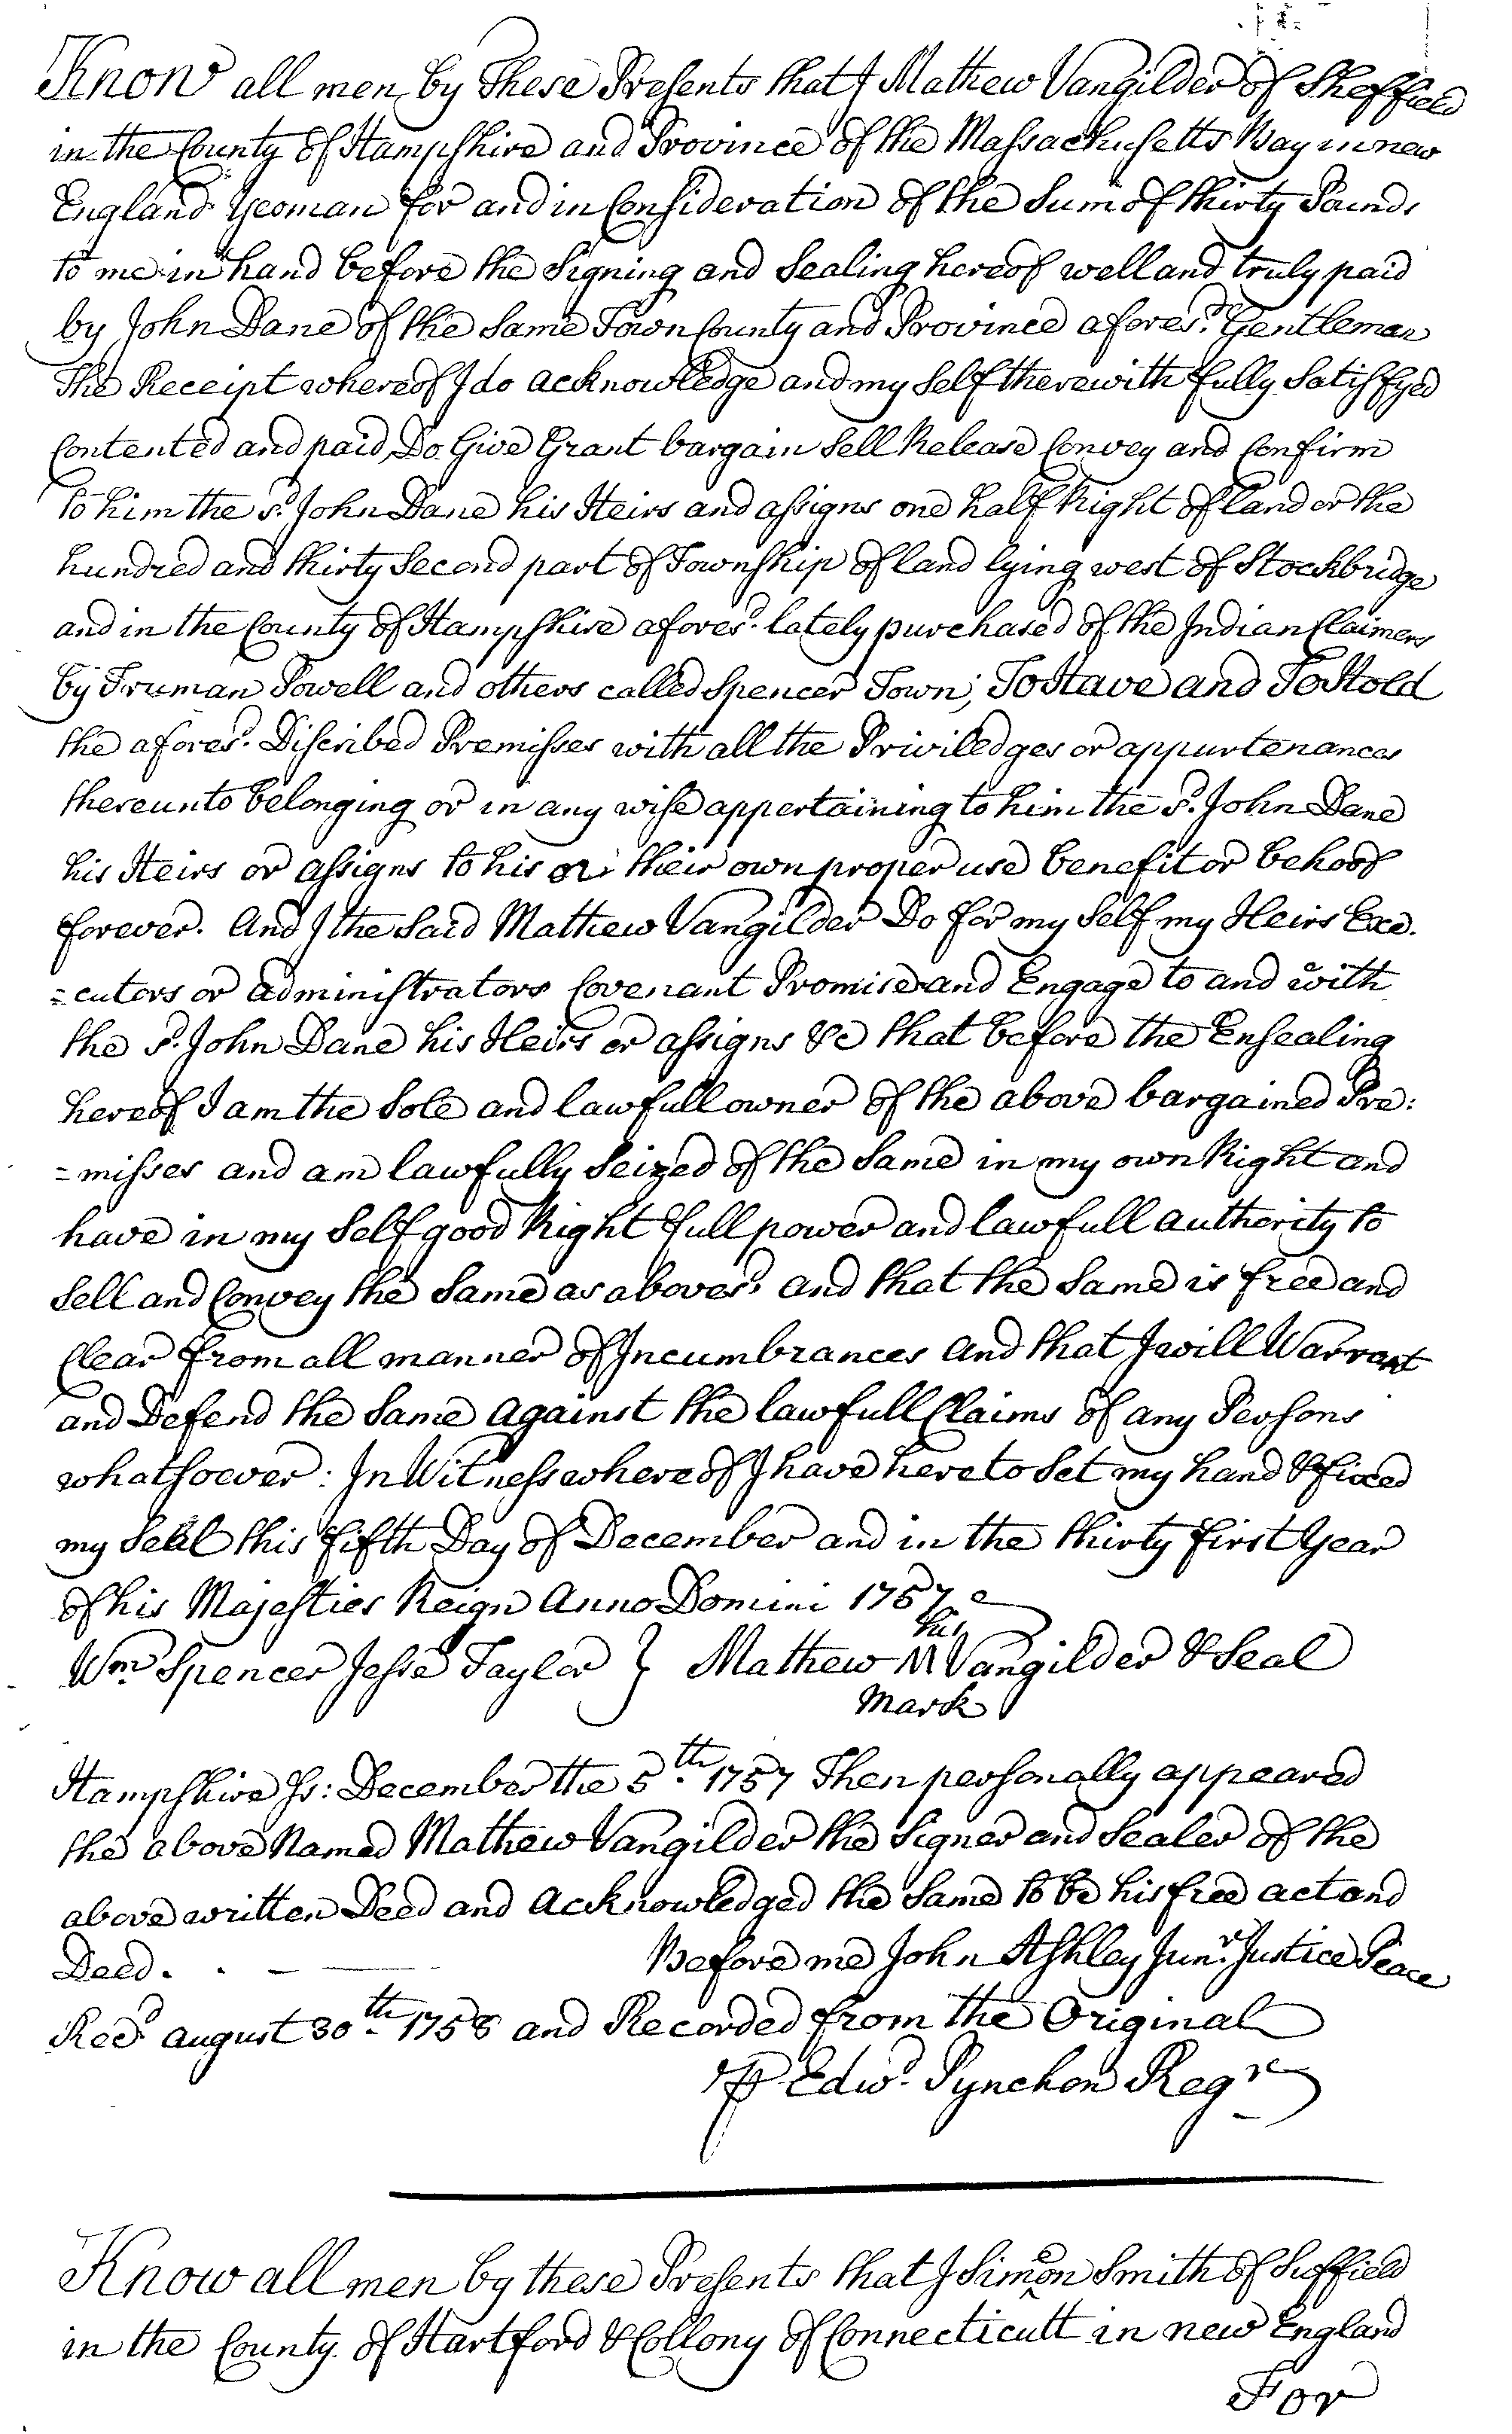 Know all men by These Presents that I Mathew Vangilder of Sheffield
in the County of Hampshire and Province of the Massachusetts Bay in new
England Yeoman for and in Consideration of the Sum of thirty Pounds
to me in hand before the Signing and Sealing hereof well and truly paid
by John Dane of the Same Town County and Province afores.d Gentleman
The Receipt whereof I do acknowledge and my Self therewith fully Satisfyed
Contented and paid, Do Give Grant bargain Sell Release Convey and Confirm
to him the s.d John Dane his Heirs and assigns one half Right of land or the
hundred and thirty Second part of Township of land lying west of Stockbridge
and in the County of Hampshire afores.d lately purchased of the Indian Claimers
by Truman Powell and others called Spencer Town; To Have and To Hold
the afores.d Discribed Premisses with all the Priviledges or appurtenances
thereunto belonging or in any wise appertaining to him the s.d John Dane
his Heirs or assigns to his or their own proper use benefit or behoof
forever. And I the Said Mathew Vangilder Do for my Self my Heirs Exe.
=cutors or administrators Covenant Promise and Engage to and with
the s.d John Dane his Heirs or assigns &c that before the Ensealing
hereof I am the Sole and lawfull owner of the above bargained Pre:
=misses and am lawfully Seized of the Same in my own Right and
have in my Self good Right full power and lawfull authority to
Sell and Convey the Same as aboves.d and that the Same is free and
Clear from all manner of Incumbrances and that I will Warrant
and Defend the Same against the lawfull Claims of any Persons
whatsoever: In Witness whereof I have hereto Set my hand & fixed
my Seal this fifth Day of December and in the thirty first Year
of his Majesties Reign Anno Domini 1757
his
Wm Spencer Jesse Taylor } Mathew M Vangilder & Seal
mark
Hampshire Ss: December the 5.th 1757 Then personally appeared
the above Named Mathew Vangilder the Signer and Sealer of the
above written Deed and acknowledged the Same to be his free act and
Deed. . - — Before me John Ashley Jun.r Justice Peace
Rec.d august 30.th 1758 and Recorded from the Original
⅌ Edw.d Pynchon Reg.r
Know all men by these Presents that I Simeon Smith of Suffield
in the County of Hartford & Collony of Connecticutt in new England
For